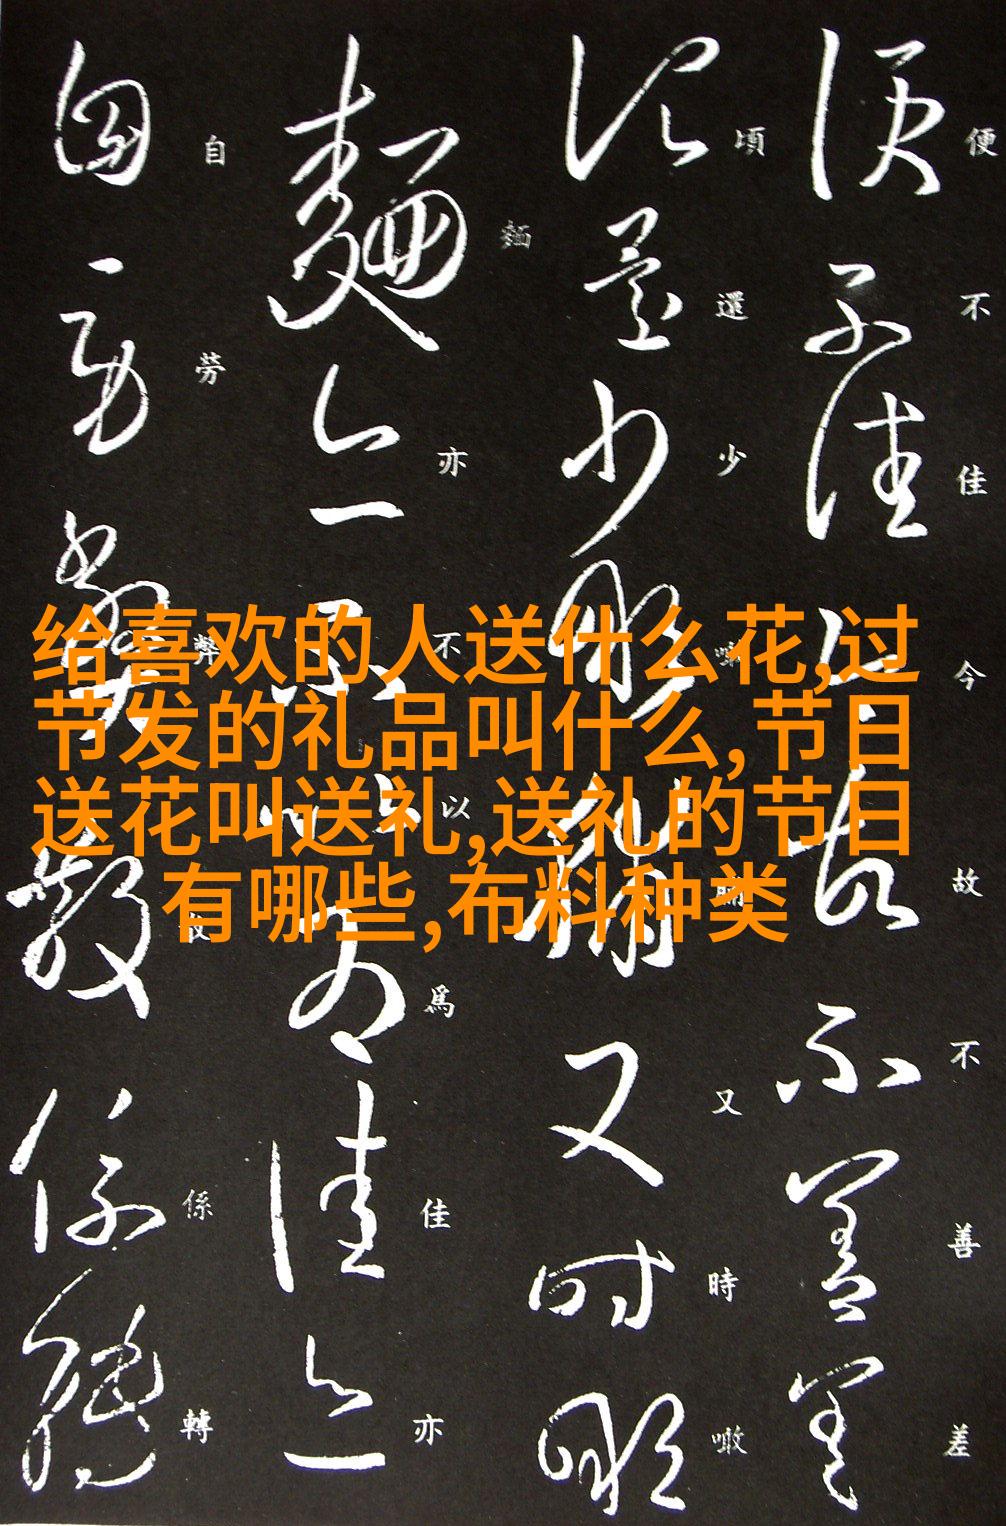 给喜欢的人送什么花,过
节发的礼品叫什么,节日
送花叫送礼,送礼的节日
有哪些,布料种类
便不佳今故不善差
頃還少噉脯又時噉
麵亦不以爲佳亦
自勞弊散係轉